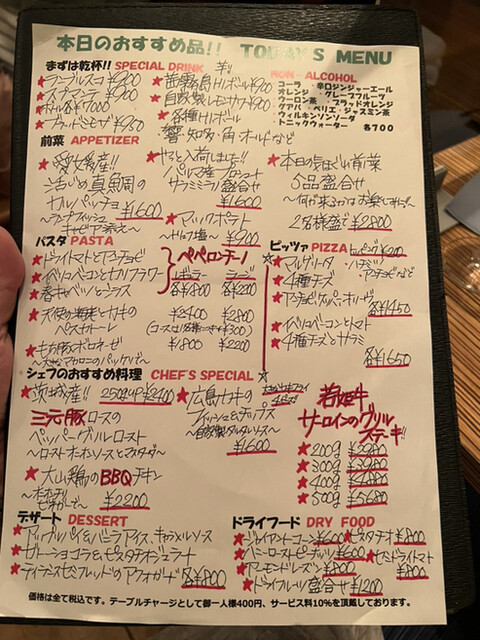 本日のおすすめ品!! TODAY'S MENU
まずは乾杯!! SPECIAL DRINK
★ランブルスコ ¥900
★スプマンテ ¥900
★ ¥1000
★ブラッドミモザ ¥950
HiボールP ¥900
★自家製レモンサワー ¥900
★各種Hiボール
響・知多・角・オールドなど
NON-ALCOHOL
コーラ ・辛口ジンジャーエール
オレンジ ・グレープフルーツ
ウーロン茶 ・ブラッドオレンジ
グアバ ・ペリエ・ジャスミン茶
・ウィルキンソンソーダ
・トニックウォーター 各700
前菜 APPETIZER
★愛媛産!!
真鯛の
カルパッチョ ¥1600
キャビア添え〜
★やっと入荷しました!!
パルマ産プロシュート
サラミ 盛合せ
¥1600
★マッシュポテト
〜トリュフ塩〜 ¥900
★本日の気まぐれ前菜
5品盛合せ
〜何が来るかはお楽しみに〜
2名様盛で ¥2800
パスタ PASTA
★ドライトマトとアンチョビ
★イベリコベーコンとカリフラワー
★春キャベツとシラス
ペペロンチーノ
レギュラー ラージ
各¥1800 各¥2200
★天使の海老とカキの
ペスカトーレ
¥2400 ¥2800
★もち豚ボロネーゼ
¥1800 ¥2200
ピッツァ PIZZA
★マルゲリータ
★4種チーズ
★アンチョビケッパーオリーブ
各¥1450
★イベリコベーコンとトマト
★4種チーズとサラミ
各¥1650
シェフのおすすめ料理 CHEF'S SPECIAL
★茨城産!! 250gUP ¥2400
三元豚ロースの
ペッパーグリルロースト
〜ローストオニオンソースとマスタード〜
★大山鶏のBBQチキン
¥2200
★広島カキの
フィッシュ&チップス
〜自家製タルタルソース〜
¥1600
若姫牛
サーロインのグリル
ステーキ!!
★200g ¥2980
★300g ¥3980
★400g ¥4880
★500g ¥5680
デザート DESSERT
★アップルパイ&バニラアイス、キャラメルソース
★ガトーショコラ&ピスタチオジェラート
★ティラミスセミフレッドのアフォガード 各¥800
ドライフード DRY FOOD
★ジャイアントコーン ¥600
★ピスタチオ ¥800
★ハニーローストピーナッツ ¥600
★セミドライトマト ¥800
★アーモンドレーズン ¥800
★ドライフルーツ盛合せ ¥1200
価格は全て税込です。テーブルチャージとして御一人様400円、サービス料10%を頂戴しております。